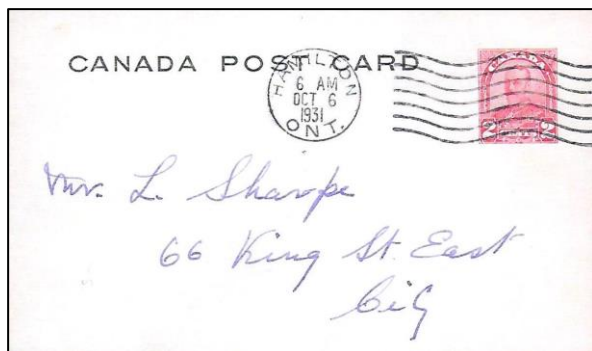 CANADA POST CARD
HAMILTON
6 AM
OCT 6
1931
ONT.
CANADA
2 2
Mr. L. Sharpe
66 King St. East
City